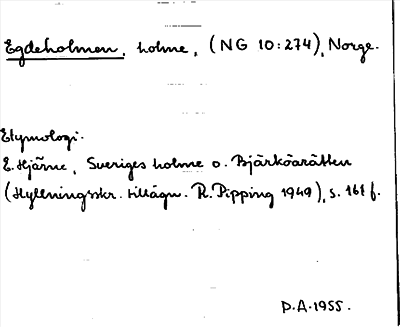 Egdeholmen, holme, (NG 10:274), Norge.
Etymologi.
E. Hjärne, Sveriges holme o. Bjärköarätten
(Hyllningsskr. tillägn. R. Pipping 1949), s. 161 f.
D.A. 1955.